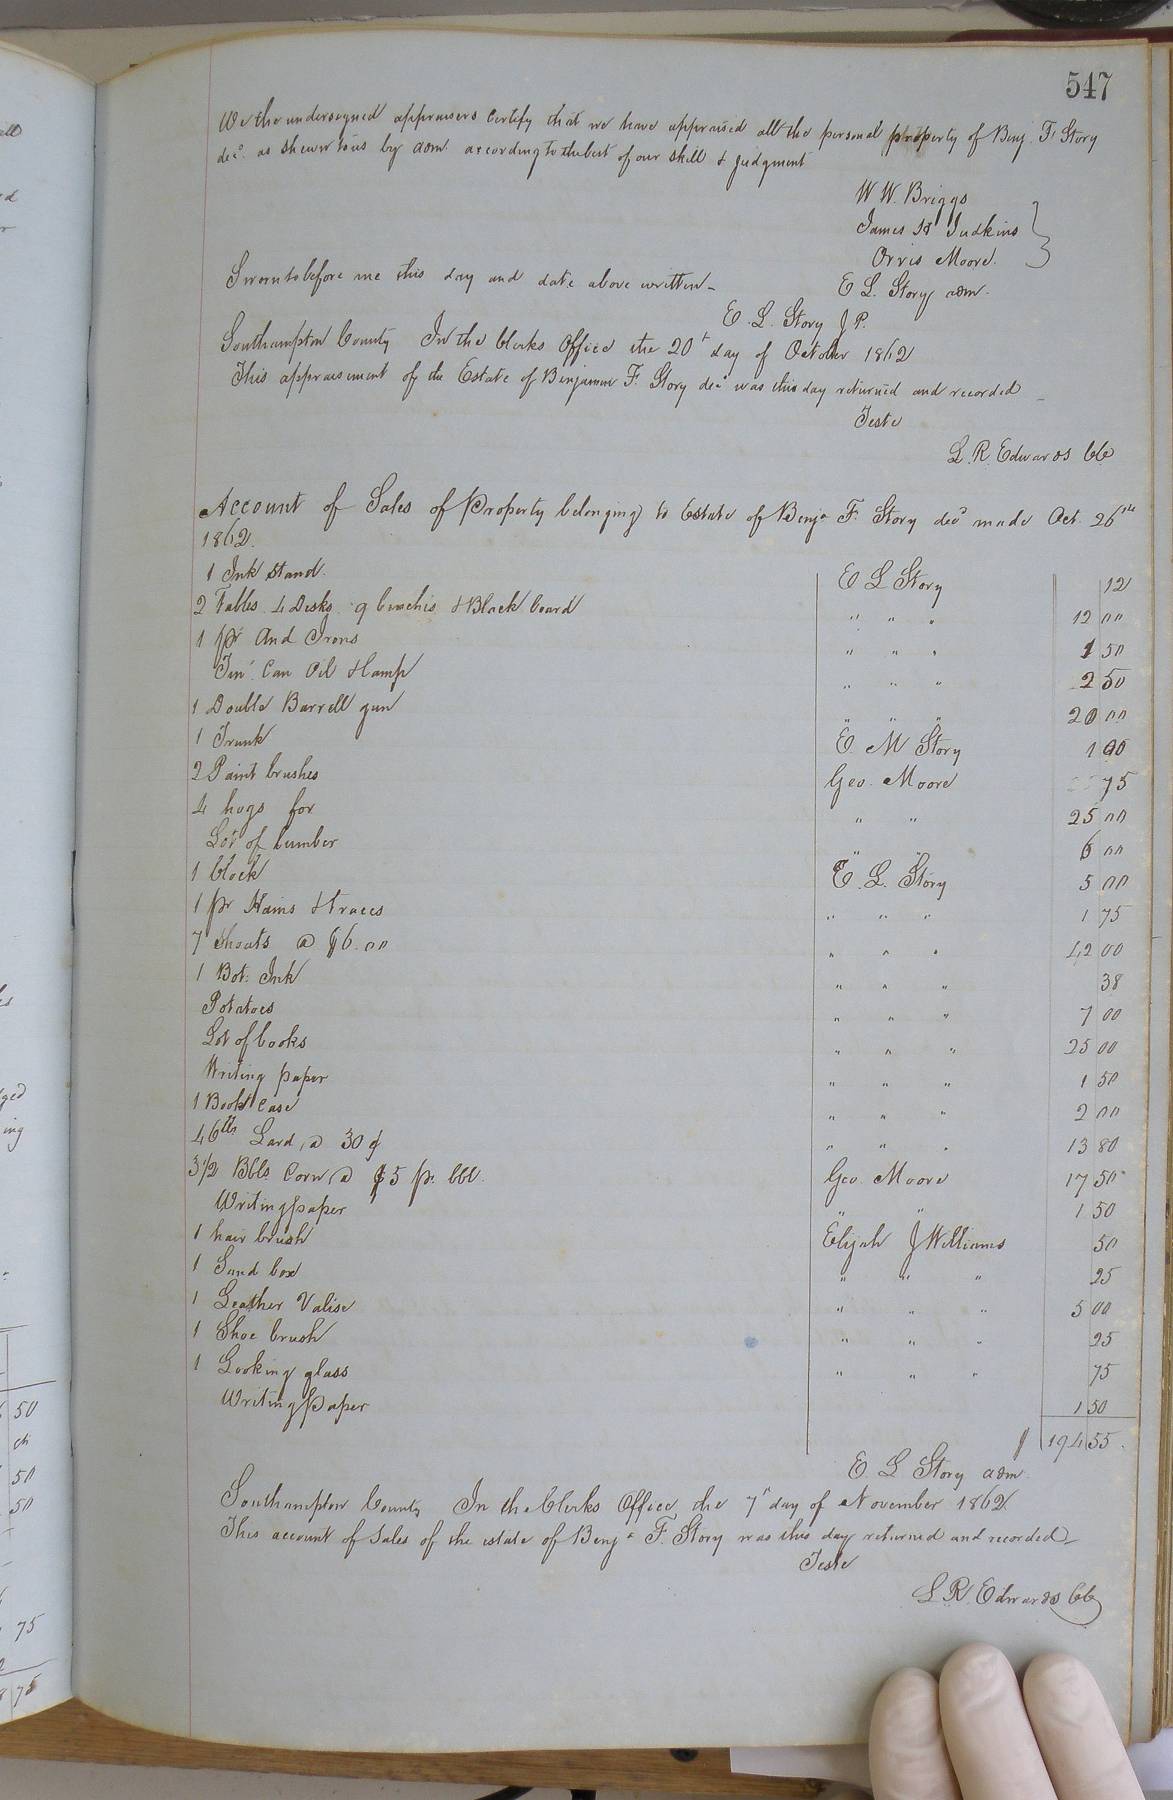 547
We the undersigned appraisers certify that we have appraised all the personal property of Benj. F. Story
decd. as shewn to us by adm. according to the best of our skill & judgment
W. W. Briggs
James H Judkins
Orvis Moore.
Sworn to before me this day and date above written_
E L. Story adm.
E. L. Story J P.
Southampton County In the Clerks Office the 20th day of October 1862
This appraisement of the Estate of Benjamin F. Story decd was this day returned and recorded _
Teste
L. R. Edwards CC
Account of Sales of Property belonging to Estate of Benja F. Story decd made Oct. 26th
1862.
1 Ink stand. E L Story 12
2 Tables 4 Desks 9 benches & Black board " " " 12 00
1 pr And Irons " " " 1 50
Tin Can Oil & Lamp " " " 2 50
1 Double Barrell gun " " " 20 00
1 Trunk E. M Story 1 00
2 Paint brushes Geo. Moore 75
4 hogs for " " 25 00
Lot of lumber " " 6 00
1 Clock E. L. Story 5 00
1 pr Hams & traces " " " 1 75
7 Shoats @ $6.00 " " " 42 00
1 Bot: Ink " " " 38
Potatoes " " " 7 00
Lot of books " " " 25 00
Writing paper " " " 1 50
1 Book Case " " " 2 00
46 lbs Lard, @ 30 ¢ " " " 13 80
3 1/2 Bbls Corn @ $5 pr. bbl. Geo. Moore 17 50
Writing paper " " 1 50
1 hair brush Elijah J Williams 50
1 Sand box " " " 25
1 Leather Valise " " " 5 00
1 Shoe brush " " " 25
1 Looking glass " " " 75
Writing Paper 1 50
$ 194 55.
E L Story adm.
Southampton County In the Clerks Office the 7th day of November 1862
This account of Sales of the estate of Benja F. Story was this day returned and recorded_
Teste
L R. Edwards CC